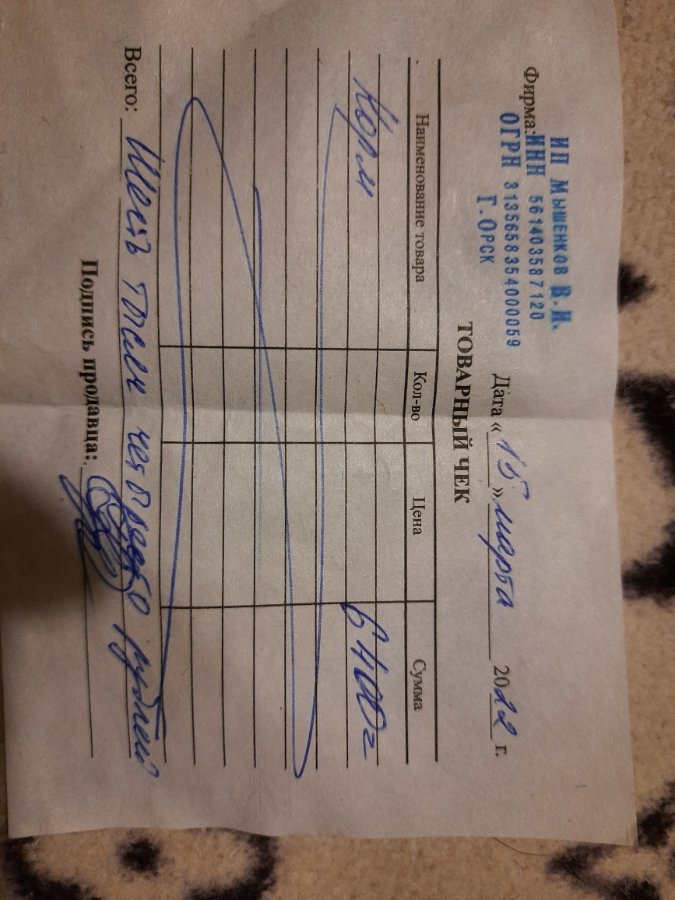 ИП Мышенков В.И.
Фирма: ИНН 561403587120
ОГРН 313565835400059
Г. Орск
Дата « 15 » марта 2022 г.
ТОВАРНЫЙ ЧЕК
Наименование товара Кол-во Цена Сумма
Корм 6400=
Всего: Шесть тысяч четыреста рублей
Подпись продавца: